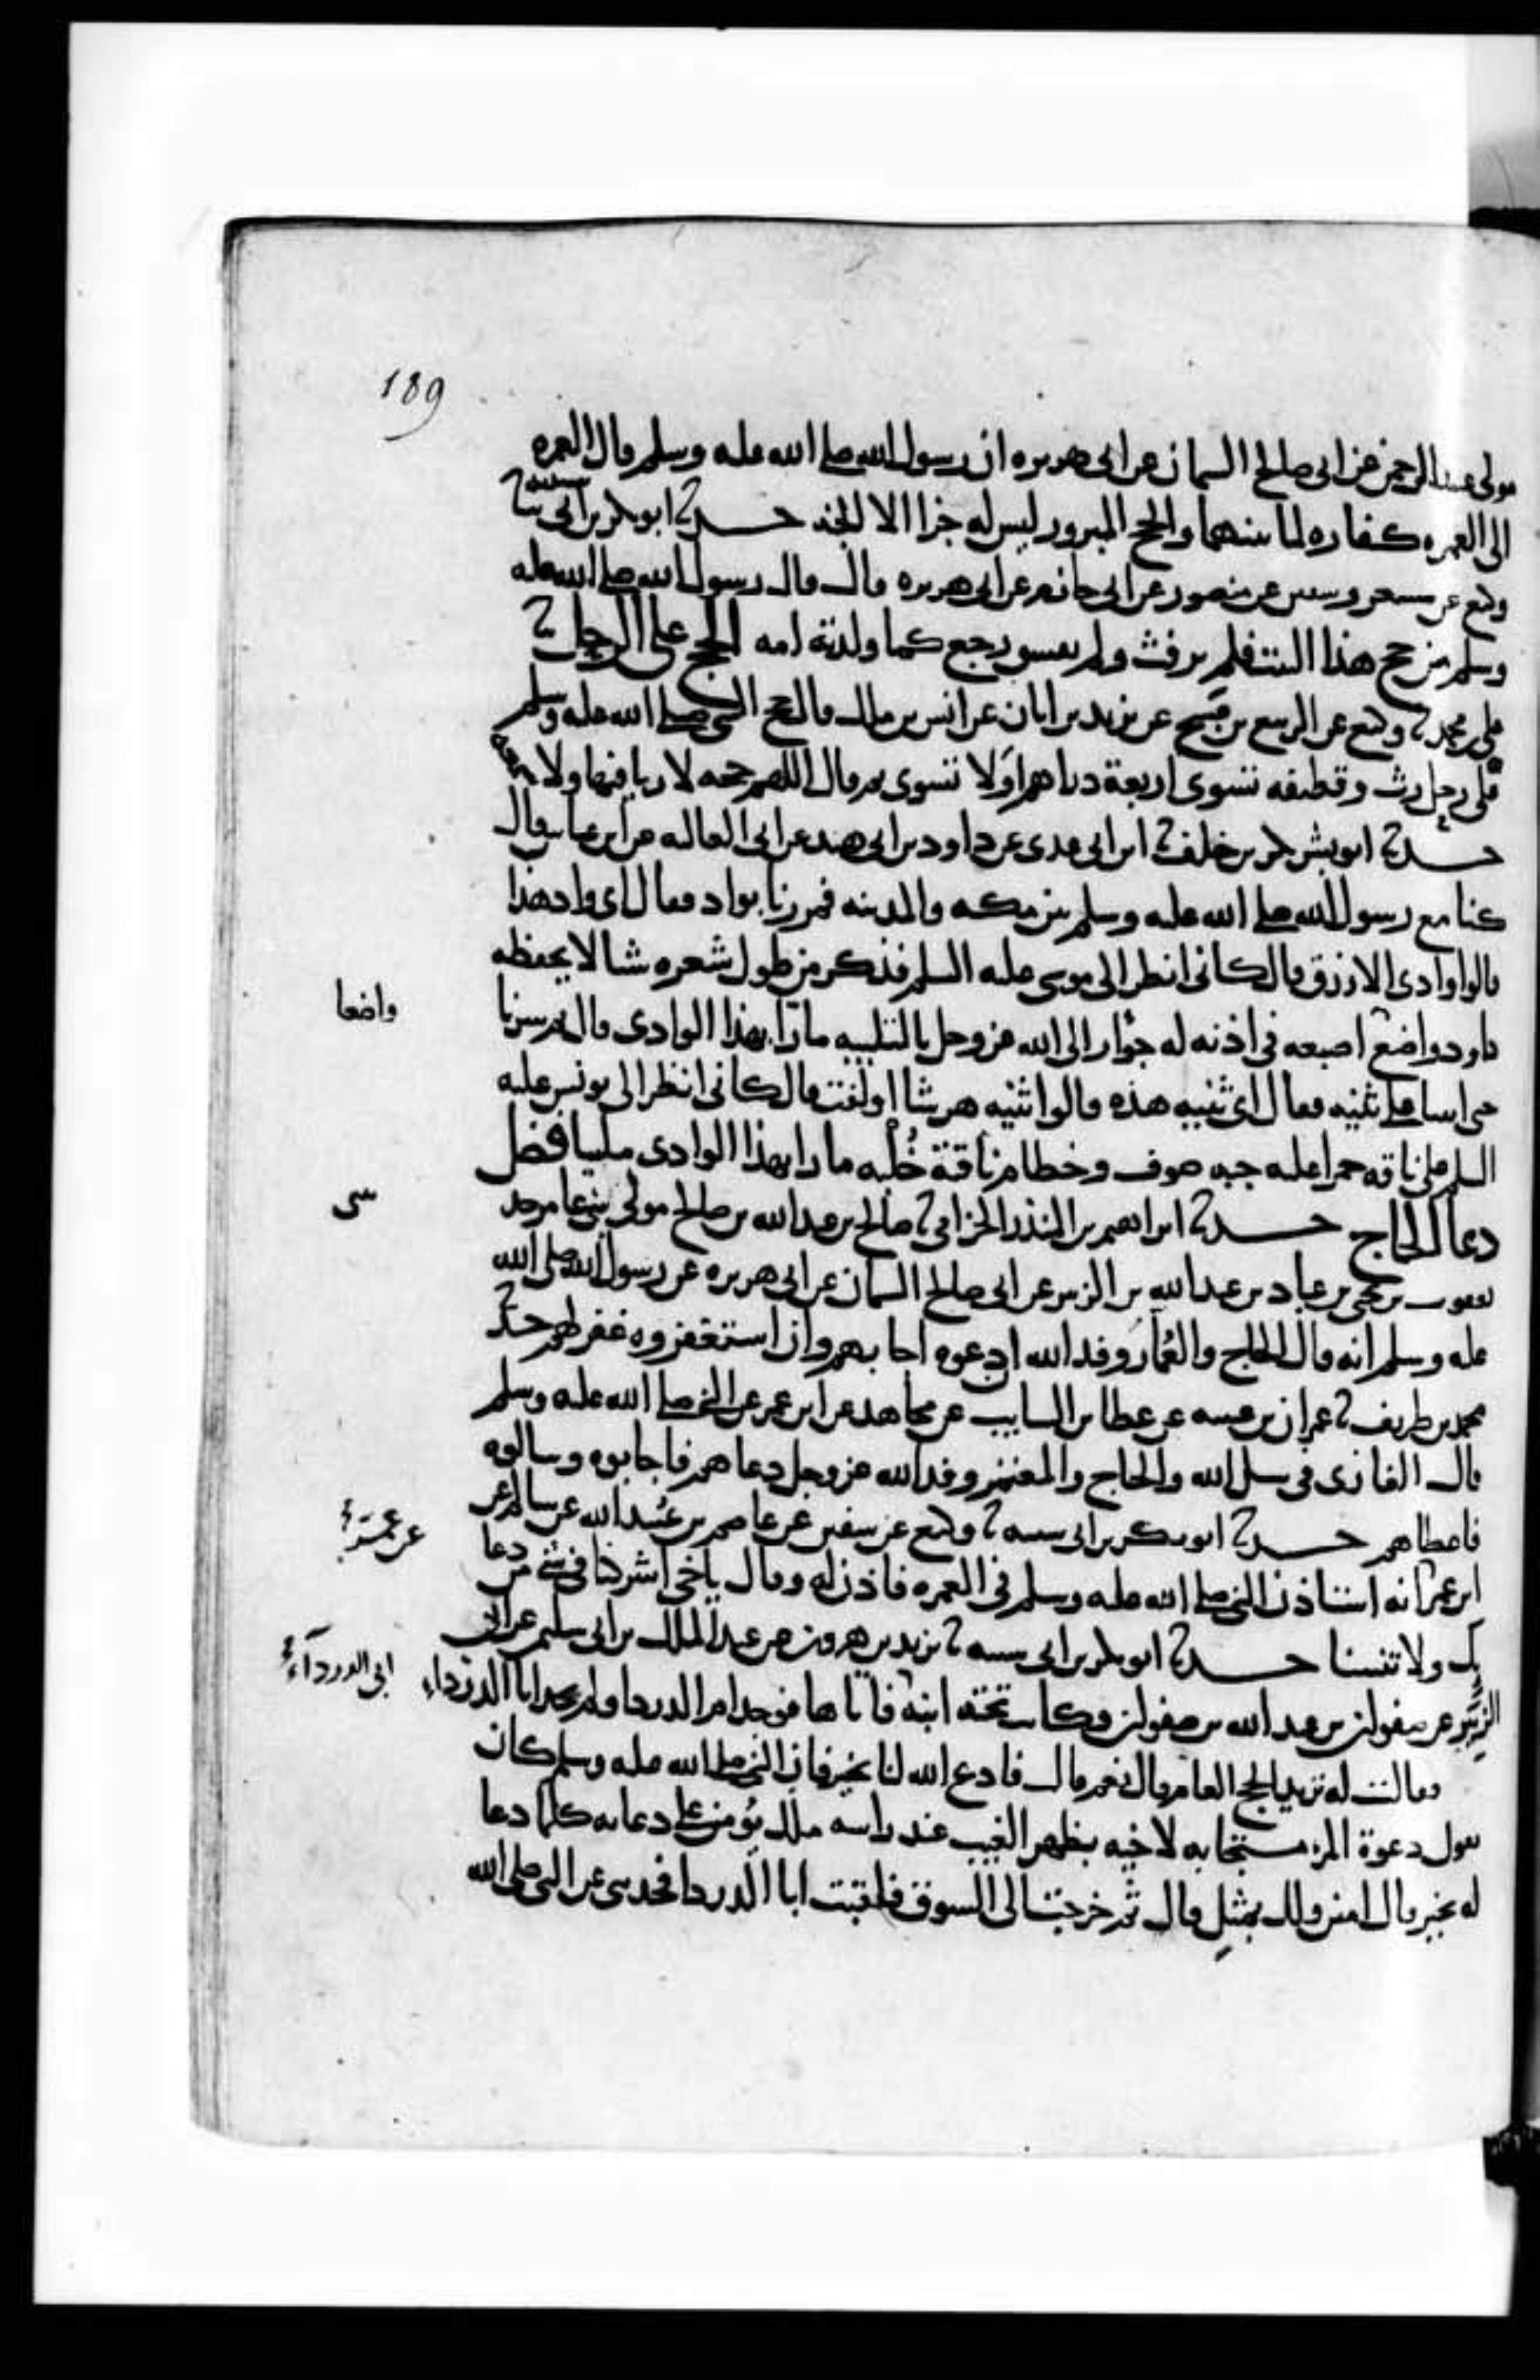 189
مولى عبد الرحمن عن ابى صالح السمان عن ابى هريره ان رسول الله صلى الله عليه وسلم قال العمره
الى العمره كفاره لما بينهما والحج المبرور ليس له جزا الا الجنه حدثنا ابو بكر بن ابى شيبه ثنا
وكيع عن مسعر وسفين عن منصور عن ابى حازم عن ابى هريره قال قال رسول الله صلى الله عليه
وسلم من حج هذا البيت فلم يرفث ولم يفسق رجع كما ولدته امه الحج على الرحل ثنا
على بن محمد ثنا وكيع عن الربيع بن صبيح عن يزيد بن ابان عن انس بن ملك قال حج النبى صلى الله عليه وسلم
على رحل رث وقطيفه تسوى اربعة دراهم او لا تسوى ثم قال اللهم حجه لا ريا فيها ولا سمعه
حدثنا ابو بشر بكر بن خلف ثنا ابن ابى عدى عن داود بن ابى هند عن ابى العاليه عن ابن عباس قال
كنا مع رسول الله صلى الله عليه وسلم بين مكه والمدينه فمررنا بواد فقال اى واد هذا
قالوا وادى الازرق قال كانى انظر الى موسى عليه السلم فذكر من طول شعره شيا لا يحفظه
داود واضع اصبعه فى اذنه له جؤار الى الله عز وجل بالتلبيه مارّا بهذا الوادى قال ثم سرنا
واضعا
حتى اتينا على ثنيه فقال اى ثنيه هذه قالوا ثنيه هرشا او لفت قال كانى انظر الى يونس عليه
السلم على ناقه حمرا عليه جبه صوف وخطام ناقته خُلْبه مارا بهذا الوادى ملبيا فضل
دعا الحاج حدثنا ابراهيم بن المنذر الحزامى ثنا صالح بن عبد الله بن صالح مولى بنى عامر حد
ثنى
يعقوب بن يحيى بن عباد بن عبد الله بن الزبير عن ابى صالح السمان عن ابى هريره عن رسول الله صلى الله
عليه وسلم انه قال الحاج والعُمّار وفد الله ان دعوه اجابهم وان استغفروه غفر لهم حدثنا
محمد بن طريف ثنا عمران بن عيينه عن عطا بن السايب عن مجاهد عن ابن عمر عن النبى صلى الله عليه وسلم
قال الغازى فى سبيل الله والحاج والمعتمر وفد الله عز وجل دعاهم فاجابوه وسالوه
فاعطاهم حدثنا ابو بكر بن ابى شيبه ثنا وكيع عن سفين عن عاصم بن عبيد الله عن سالم عن
ابن عمر انه استاذن النبى صلى الله عليه وسلم فى العمره فاذن له وقال ياخى اشركنا فى شى من دعا
عن عمر
يك ولا تنسنا حدثنا ابو بكر بن ابى شيبه ثنا يزيد بن هرون عن عبد الملك بن ابى سليمن عن ابى
الزُّبَيْر عن صفوان بن عبد الله بن صفوان وكانت تحته ابنة فاتاها فوجد ام الدردا ولم يجد ابا الدرداء
ابى الدرداء
فقالت له تريد الحج العام قال نعم قالت فادع الله لنا بخير فان النبى صلى الله عليه وسلم كان
يقول دعوة المرء مستجابه لاخيه بظهر الغيب عند راسه ملك يؤمن على دعايه كلما دعا
له بخير قال امين ولك بمثل قال ثم خرجت الى السوق فلقيت ابا الدردا فحدثنى عن النبى صلى الله